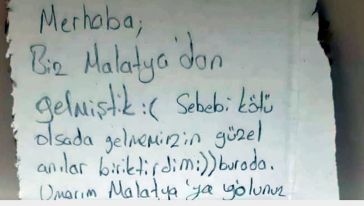 Merhaba;
Biz Malatya'dan
gelmiştik :( Sebebi kötü
olsada gelmemizin güzel
anılar biriktirdim:)) burada.
Umarım Malatya'ya yolunuz